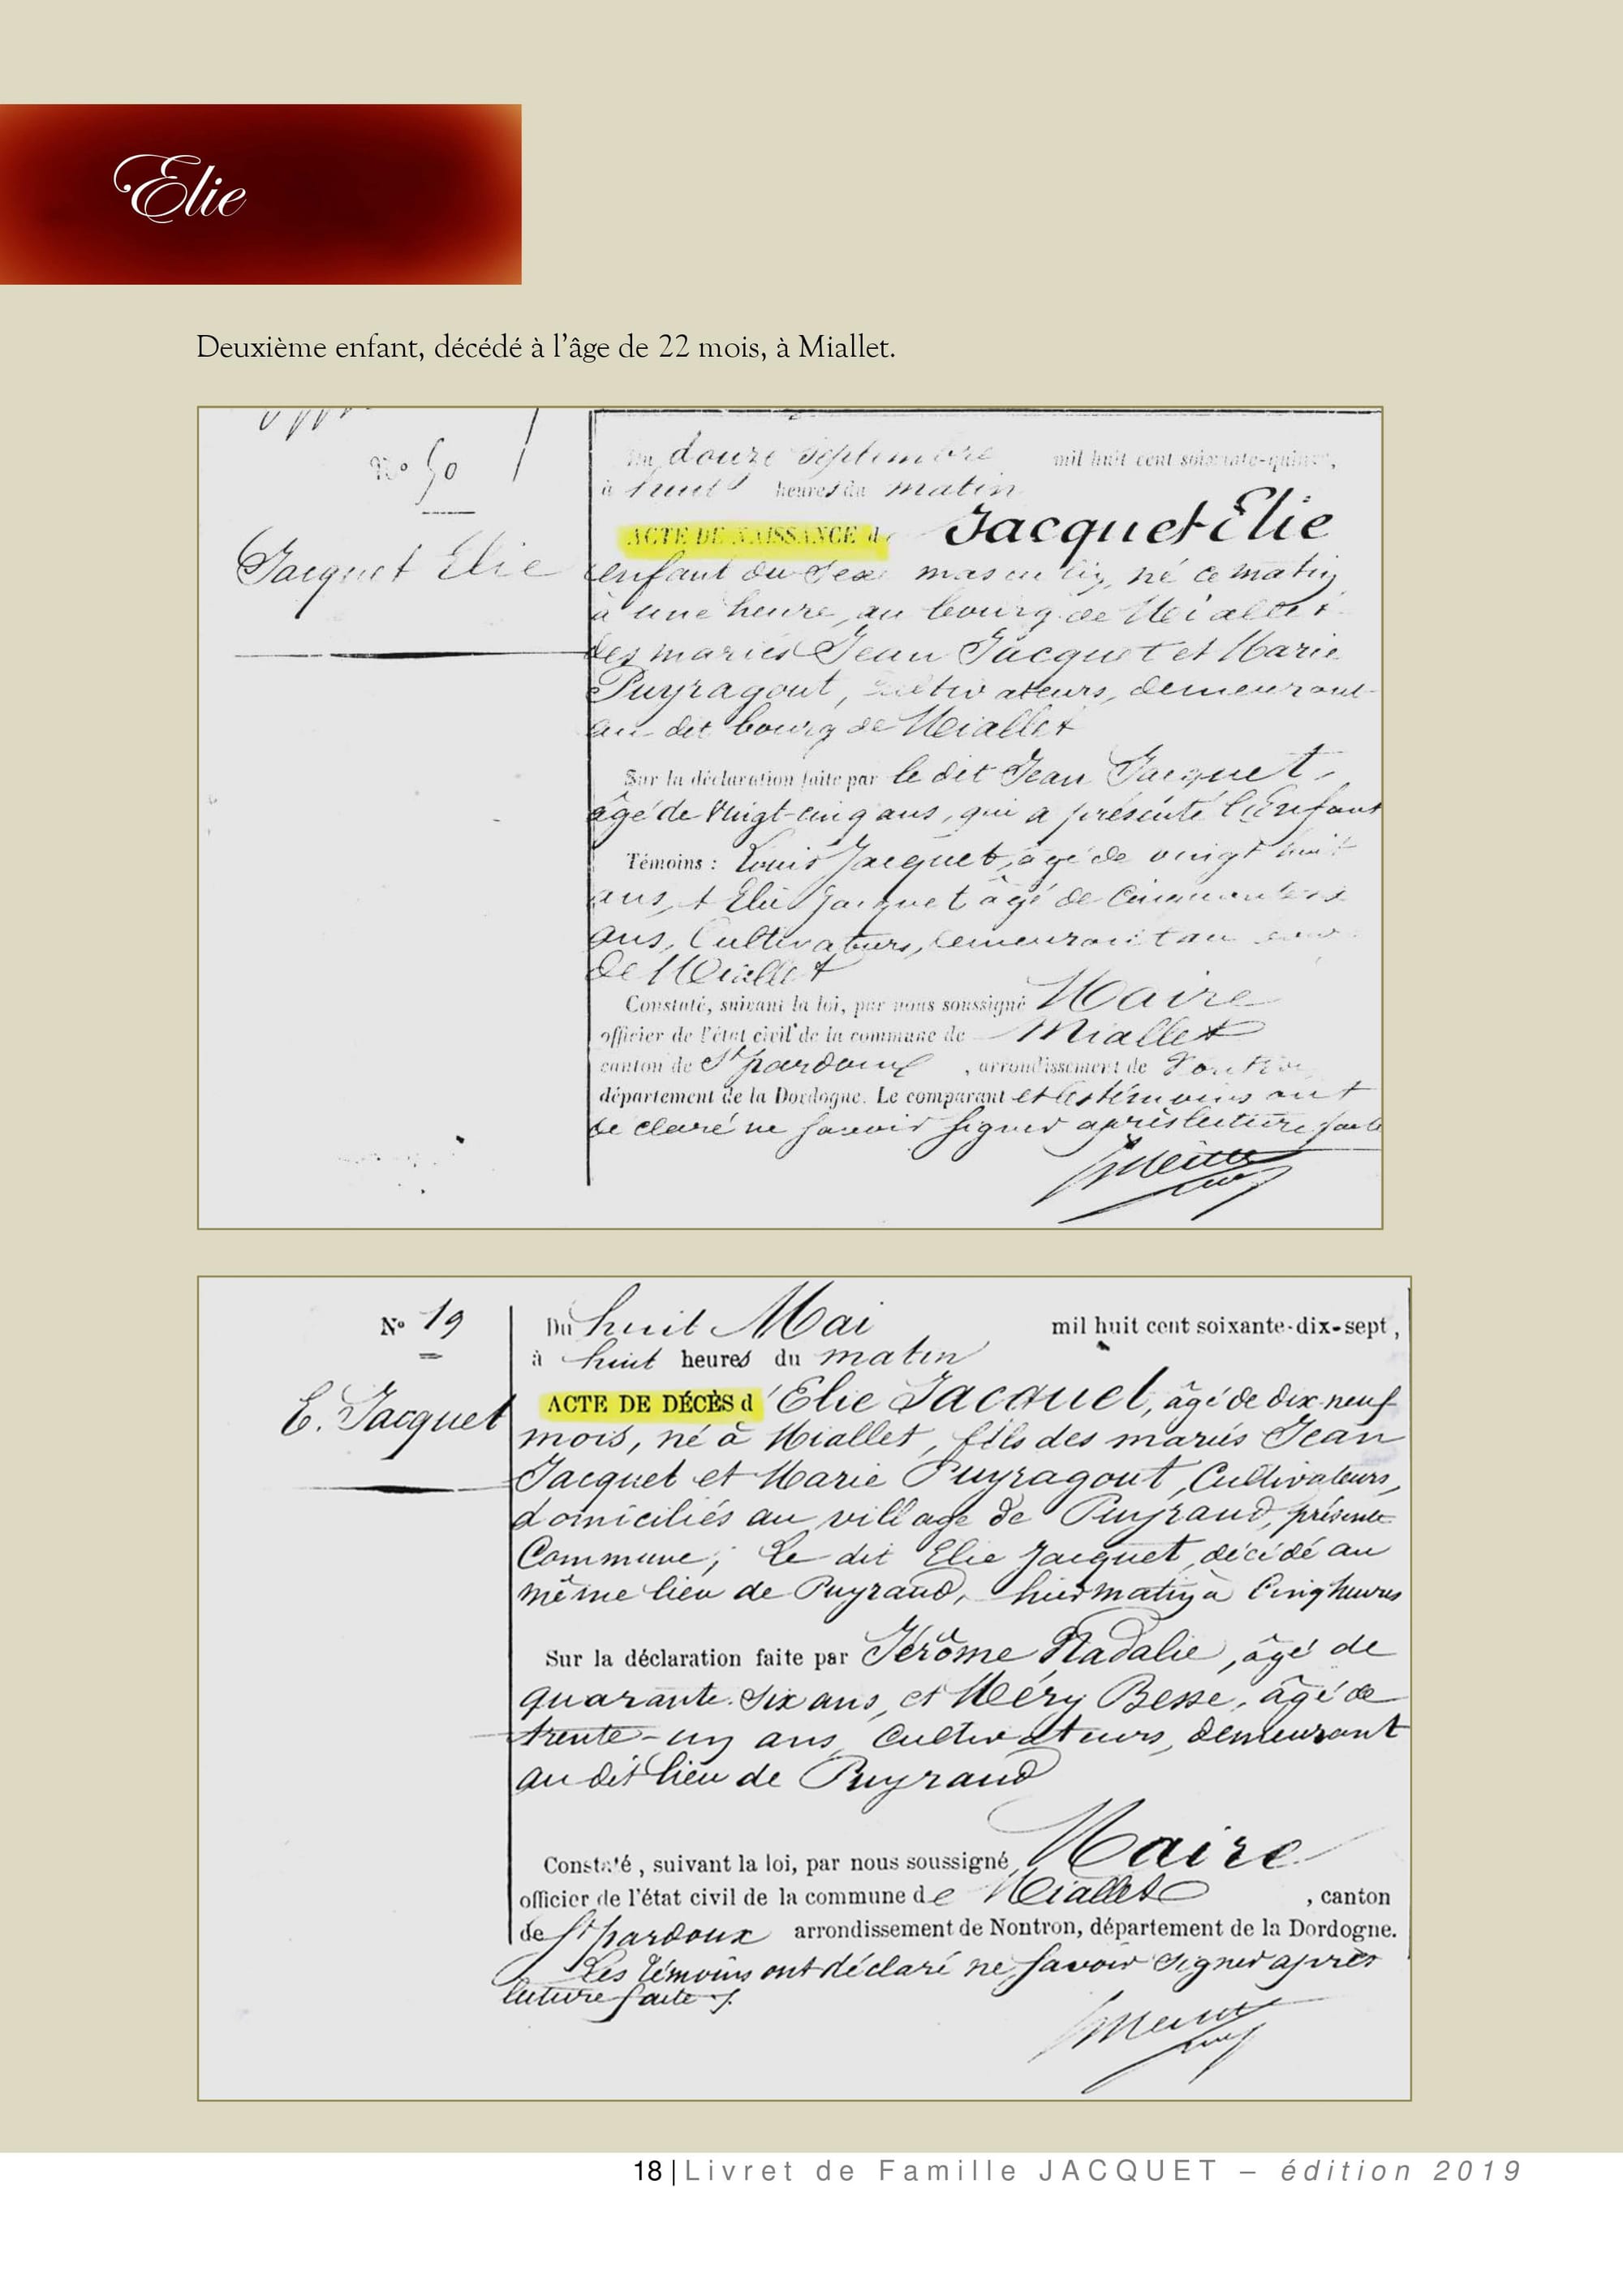 Elie
Deuxième enfant, décédé à l'âge de 22 mois, à Miallet.
No 50
Jacquet Elie
Du douze septembre mil huit cent soixante-quinze,
à huit heures du matin
ACTE DE NAISSANCE d Jacquet Elie
enfant du sexe masculin, né ce matin
à une heure, au bourg de Miallet
des mariés Jean Jacquet et Marie
Puyragout, Cultivateurs, demeurant
au dit bourg de Miallet
Sur la déclaration faite par le dit Jean Jacquet,
âgé de Vingt-cinq ans, qui a présenté l'Enfant
Témoins : Louis Jacquet, âgé de vingt huit
ans, & Elie Jacquet âgé de
ans, Cultivateurs, demeurant au
de Miallet
Constaté, suivant la loi, par nous soussigné Maire
officier de l'état civil de la commune de Miallet
canton de St pardoux , arrondissement de Nontron
département de la Dordogne. Le comparant et les témoins ont
de claré ne savoir signer après lecture faite
No 19
E. Jacquet
Du huit Mai mil huit cent soixante-dix-sept,
à huit heures du matin
ACTE DE DÉCÈS d'Elie Jacquet, âgé de dix-neuf
mois, né à Miallet, fils des mariés Jean
Jacquet et Marie Puyragout, Cultivateurs,
domiciliés au village de Puyraud, présente
Commune; Le dit Elie Jacquet, décédé au
même lieu de Puyraud, hier matin à Cinq heures
Sur la déclaration faite par Jérôme Nadalie, âgé de
quarante-six ans, et Méry Besse, âgé de
trente-un ans, Cultivateurs, demeurant
au dit lieu de Puyraud
Constaté, suivant la loi, par nous soussigné Maire
officier de l'état civil de la commune de Miallet , canton
de St pardoux arrondissement de Nontron, département de la Dordogne.
Les témoins ont déclaré ne savoir signer après
lecture faite
18|Livret de Famille JACQUET – édition 2019